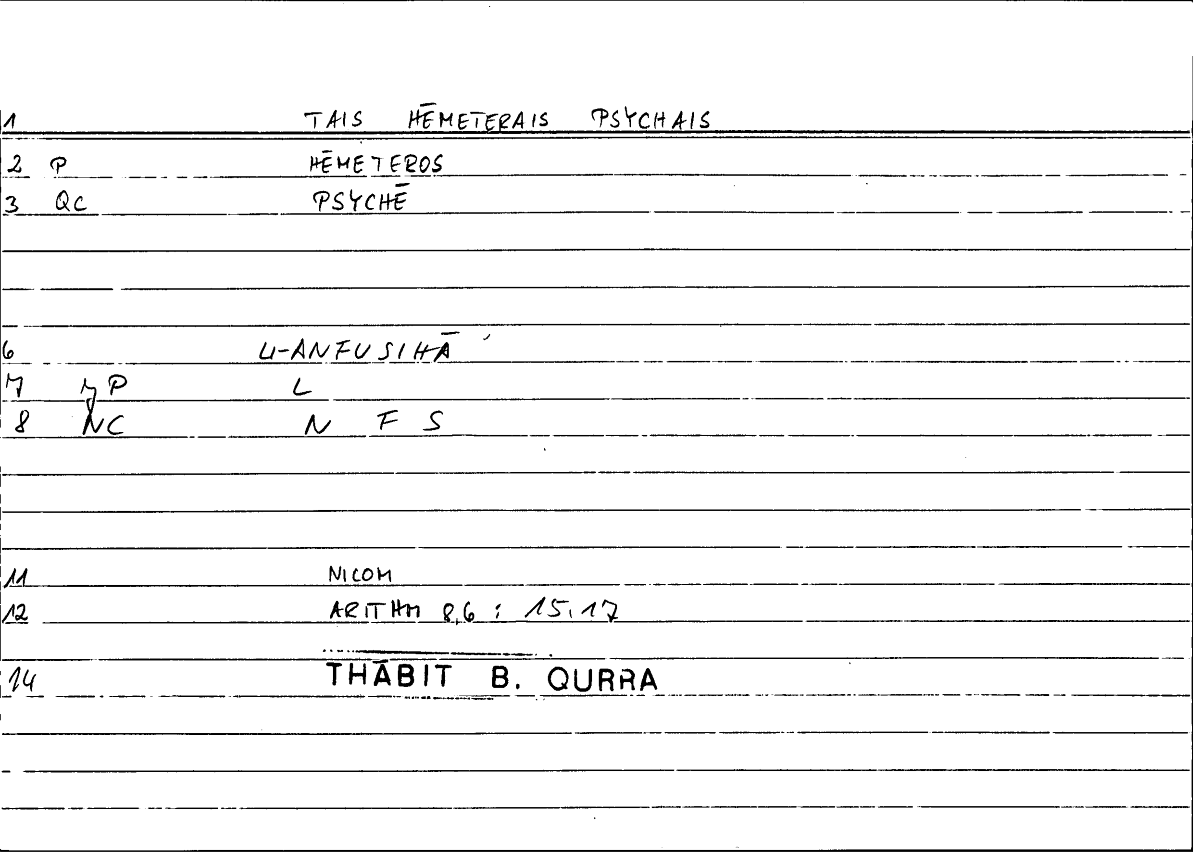 1 TAIS HĒMETERAIS PSYCHAIS
2 P HĒMETEROS
3 QC PSYCHĒ
6 LI-ANFUSIHĀ
7 P L
8 NC N F S
11 NICOM
12 ARITHM 8,6 : 15,17
14 THĀBIT B. QURRA